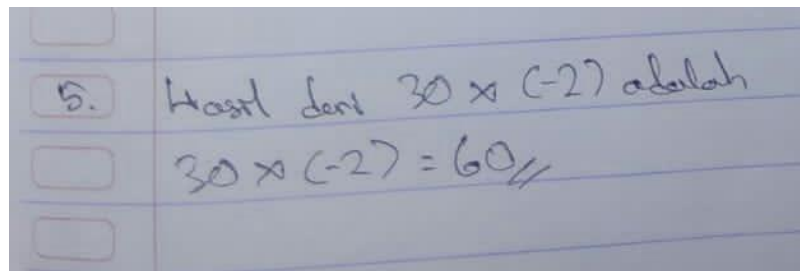 5. Hasil dari 30 x (-2) adalah
30 x (-2) = 60//